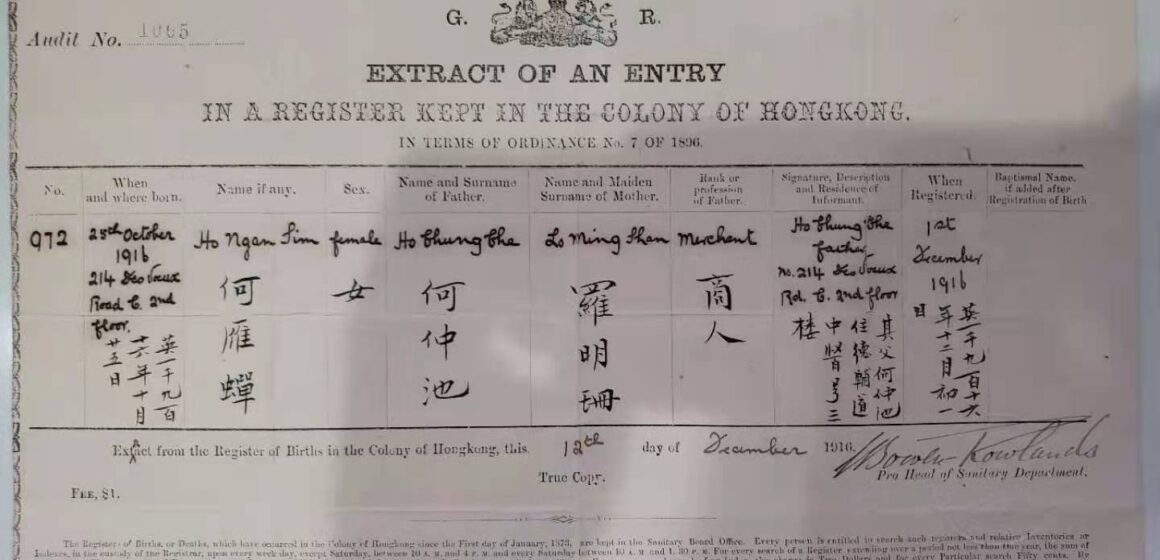 G. R.
Audit No. 1065
EXTRACT OF AN ENTRY
IN A REGISTER KEPT IN THE COLONY OF HONGKONG.
IN TERMS OF ORDINANCE No. 7 OF 1896.
No.
When
and where born.
Name if any.
Sex.
Name and Surname
of Father.
Name and Maiden
Surname of Mother.
Rank or
profession
of Father.
Signature, Description
and Residence of
Informant.
When
Registered.
Baptismal Name,
if added after
Registration of Birth
972
25th October
1916
214 Des Voeux
Road C. 2nd
floor.
英一千九百
十六年十月
廿五日
Ho Ngan Sim
何雁蟬
female
女
Ho Chung Che
何仲池
Lo Ming Shan
羅明珊
Merchant
商人
Ho Chung Che
father
No. 214 Des Voeux
Rd. C. 2nd floor
其父何仲池
住德輔道
中號三
樓
1st
December
1916
英一千九百十六
年十二月初一
日
Extract from the Register of Births in the Colony of Hongkong, this 12th day of December 1916.
True Copy.
Pro Head of Sanitary Department.
FEE, $1.
The Registers of Births, or Deaths, which have occurred in the Colony of Hongkong since the First day of January, 1873, are kept in the Sanitary Board Office. Every person is entitled to search such registers and relative Inventories or
Indexes, in the custody of the Registrar, upon every week day, except Saturday, between 10 A. M. and 4 P. M. and every Saturday between 10 A. M. and 1.30 P. M. For every search of a Register extending over a period not less than one year, the sum of